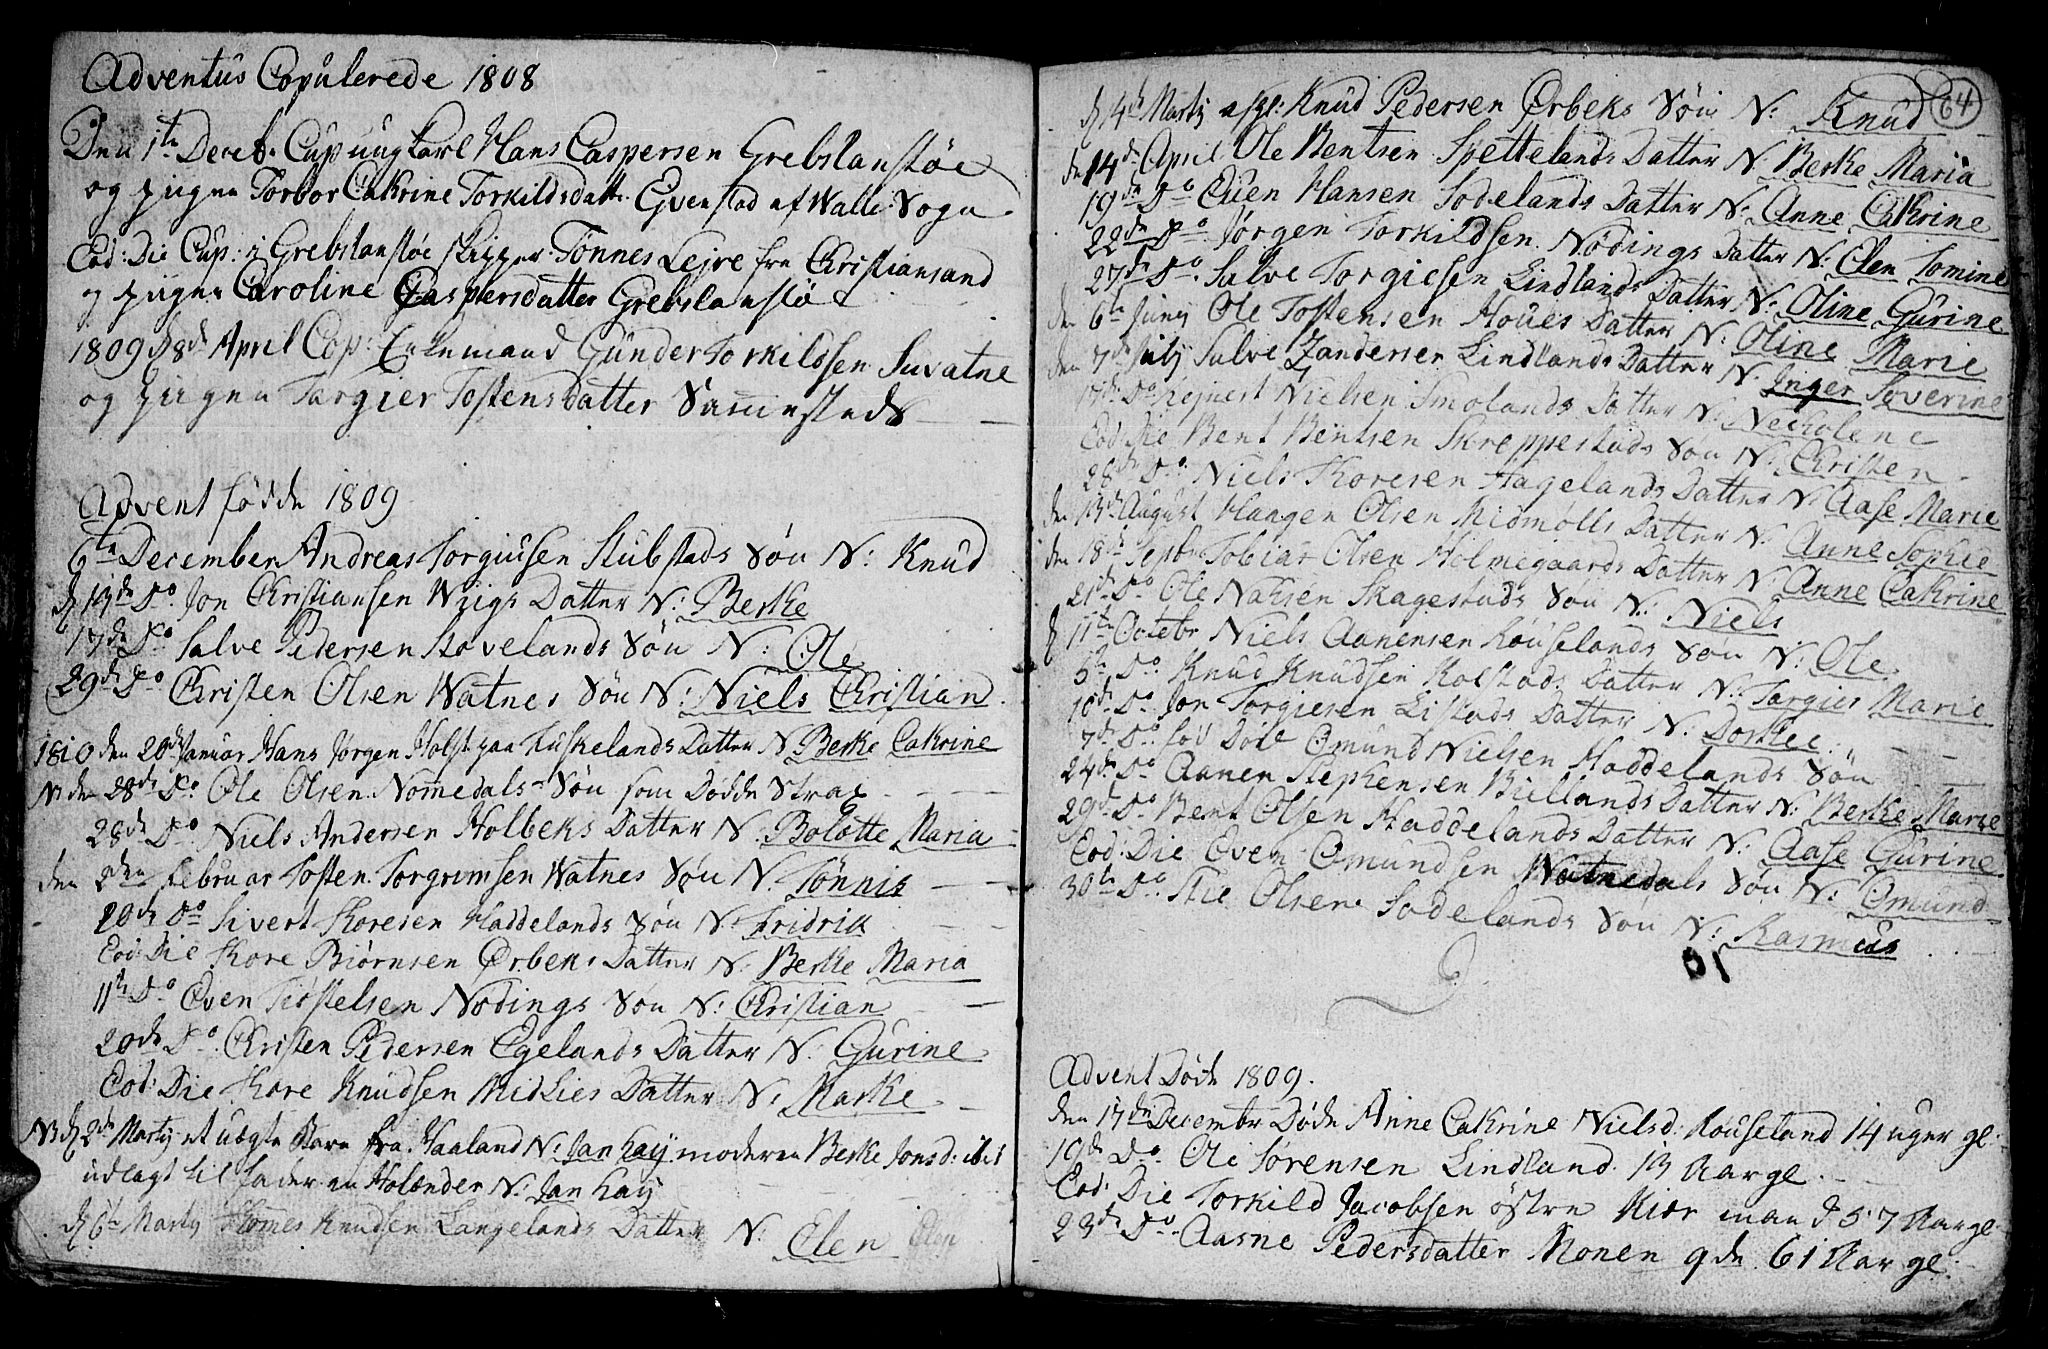 Adventus Copulerede 1808
Den 1te Deceb. Cup ungkarl Hans Caspersen Grebstanstøe
og pigen Torbor Cathrine Torkildsdatt. Egenstad af Walle Sogn
Eod: Die Cup: i Grebstanstøe skipper Tønnes Lejre fra Christiansand
og pigen Caroline Caspersdatter Grebstanstø
1809 d 8de April Cop: Enkemand Gunder Torkildssen Suvatne
og pigen Targier Tostensdatter Saminstads
Advent fødde 1809
6te December Andreas Torgiusen Stubstads Søn N: Knud
d 13de Do. Jon Christiansen Wiigs Datter N: Berthe
17de Do Salve Pedersen Stovelands Søn N: Ole
29de Do Christen Olsen Watnes Søn N: Niels Christian
1810 den 20de Januar Hans Jørgen Holst paa Tuskelands Datter N. Berthe Cathrine
N den 28de Do Ole Olsen Nomedals Søn som Dødde Strax
28de Do Niels Andersen Holbeks Datter N. Bolætte Maria
den 2den Februar Tosten Torgrimsen Watnes Søn N. Tønnis
20de Do Sivert Thoresen Haddelands Søn N: Fridrik
Eod: Die Thore Biørnsen Ørbeks Datter N. Berthe Maria
11te Do Even Tiøstelsen Nødings Søn N: Christian
20de Do. Christen Pedersen Egelands Datter N. Gurine
Eod: Die Thore Knudsen Midlies Datter N: Marthe
NB d 2de Martj et uægte Barn fra Haaland N: Jan Kaij moderen Berthe Jonsd: ibid
udlagt til fader en Holænder N. Jan Kaij
d 6te Martj Thomes Knudsen Langelands Datter N: Elen Elen
64
d 14de Martj afgl: Knud Pedersen Ørbeks Søn N: Knud
den 14de April Ole Bentsen Spettelands Datter N: Berthe Maria
19de Do Even Hansen Sodelands Datter N: Anne Cathrine
22de Do Jørgen Torkildsen Nødings Datter N: Elen Tomine
27de Do. Salve Torgiesen Lindlands Datter N: Oline Gurine
den 6te Junij Ole Tostensen Houes Datter N: Oline Marie
den 7de Julij Salve Zandersen Lindlands Datter N. Inger Severine
17de Do Rejnert Nielsen Smolands Datter N: Neckolene
Eod: Die Bent Bentsen Skreppestads Søn N: Christen
28de Do. Niels Thoresen Hagelands Datter N: Aase Marie
den 13de August Haagen Olsen Midmølls Datter N: Anne Sophie
den 18de Septbr Tobias Olsen Holmegaards Datter N: Anne Cathrine
21de Do Ole Nahsen Skagestads Søn N.: Niels
d 11te Octobr Niels Aanensen Rouselands Søn N: Ole
5te Do Knud Knudsen Kolstads Datter N: Targier Marie
10de Do Jon Torgiesen Listads Datter N. Dorthee
7de Do: fød Død Omund Nielsen Haddelands Søn
24de Do Aanen Stephensen Biellands Datter N: Berthe Marie
29de Do Bent Olsen Haddelands Datter N: Aase Gurine
Eod: Die Even Omundsen Watnedals Søn N: Omund
30te Do. Stie Olsen Sodelands Søn N: Rasmus
Advent Døde 1809.
den 17de Decembr Døde Anne Cathrine Nielsd: Rouseland 14 uger gl.
19de Do Ole Sørensen Lindland 13 Aar gl
Eod: Die Torkild Jacobsen østre Kier mand 57 Aar gl
23de Do Aasne Pedersdatter Monen qde 61 Aar gl